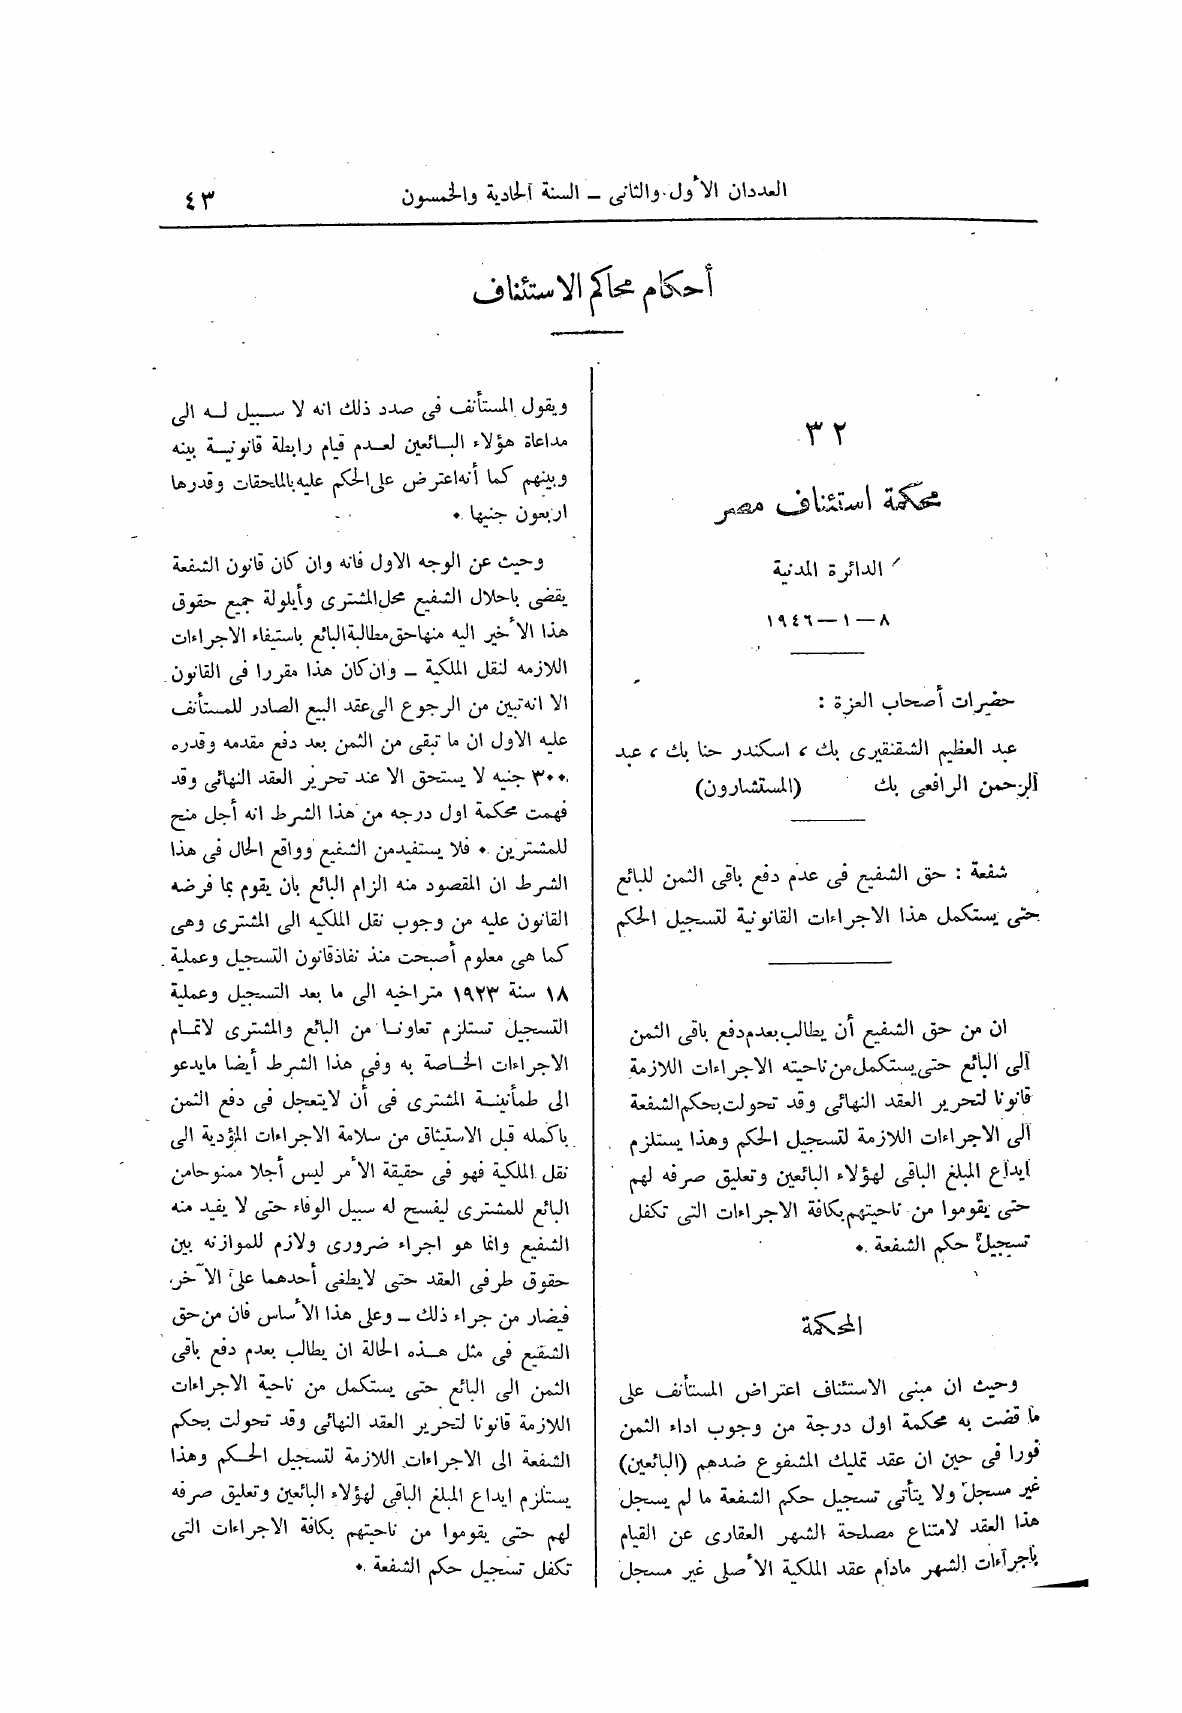 العددان الأول والثانى – السنة الحادية والخمسون
٤٣
أحكام محاكم الاستئناف
٣٢
محكمة استئناف مصر
الدائرة المدنية
٨ – ١ – ١٩٤٦
حضيرات أصحاب العزة :
عبد العظيم الشقنقيرى بك ، اسكندر حنا بك ، عبد
الرحمن الرافعى بك (المستشارون)
شفعة : حق الشفيع فى عدم دفع باقى الثمن للبائع
حتى يستكمل هذا الاجراءات القانونية لتسجيل الحكم
ان من حق الشفيع أن يطالب بعدم دفع باقى الثمن
الى البائع حتى يستكمل من ناحيته الاجراءات اللازمة
قانونا لتحرير العقد النهائى وقد تحولت بحكم الشفعة
الى الاجراءات اللازمة لتسجيل الحكم وهذا يستلزم
ايداع المبلغ الباقى لهؤلاء البائعين وتعليق صرفه لهم
حتى يقوموا من ناحيتهم بكافة الاجراءات التى تكفل
تسجيل حكم الشفعة .
المحكمة
وحيث ان مبنى الاستئناف اعتراض المستأنف على
ما قضت به محكمة اول درجة من وجوب اداء الثمن
فورا فى حين ان عقد تمليك المشفوع ضدهم (البائعين)
غير مسجل ولا يتأتى تسجيل حكم الشفعة ما لم يسجل
هذا العقد لامتناع مصلحة الشهر العقارى عن القيام
باجراءات الشهر مادام عقد الملكية الأصلى غير مسجل
ويقول المستأنف فى صدد ذلك انه لا سبيل له الى
مداعاة هؤلاء البائعين لعدم قيام رابطة قانونية بينه
وبينهم كما أنه اعترض على الحكم عليه بالملحقات وقدرها
اربعون جنيها .
وحيث عن الوجه الاول فانه وان كان قانون الشفعة
يقضى باحلال الشفيع محل المشترى وأيلولة جميع حقوق
هذا الأخير اليه منها حق مطالبة البائع باستيفاء الاجراءات
اللازمه لنقل الملكية – وان كان هذا مقررا فى القانون
الا انه تبين من الرجوع الى عقد البيع الصادر للمستأنف
عليه الاول ان ما تبقى من الثمن بعد دفع مقدمه وقدره
٣٠٠ جنيه لا يستحق الا عند تحرير العقد النهائى وقد
فهمت محكمة اول درجه من هذا الشرط انه أجل منح
للمشترين . فلا يستفيد من الشفيع وواقع الحال فى هذا
الشرط ان المقصود منه الزام البائع بان يقوم بما فرضه
القانون عليه من وجوب نقل الملكيه الى المشترى وهى
كما هى معلوم أصبحت منذ نفاذ قانون التسجيل وعملية
١٨ سنة ١٩٢٣ متراخيه الى ما بعد التسجيل وعملية
التسجيل تستلزم تعاونا من البائع والمشترى لاتمام
الاجراءات الخاصة به وفى هذا الشرط أيضا مايدعو
الى طمأنينة المشترى فى أن لايتعجل فى دفع الثمن
باكمله قبل الاستيثاق من سلامة الاجراءات المؤدية الى
نقل الملكية فهو فى حقيقة الأمر ليس أجلا ممنوحا من
البائع للمشترى ليفسح له سبيل الوفاء حتى لا يفيد منه
الشفيع وانما هو اجراء ضرورى ولازم للموازنه بين
حقوق طرفى العقد حتى لايطغى أحدهما على الآخر،
فيضار من جراء ذلك – وعلى هذا الأساس فان من حق
الشفيع فى مثل هذه الحالة ان يطالب بعدم دفع باقى
الثمن الى البائع حتى يستكمل من ناحية الاجراءات
اللازمة قانونا لتحرير العقد النهائى وقد تحولت بحكم
الشفعة الى الاجراءات اللازمة لتسجيل الحكم وهذا
يستلزم ايداع المبلغ الباقى لهؤلاء البائعين وتعليق صرفه
لهم حتى يقوموا من ناحيتهم بكافة الاجراءات التى
تكفل تسجيل حكم الشفعة .